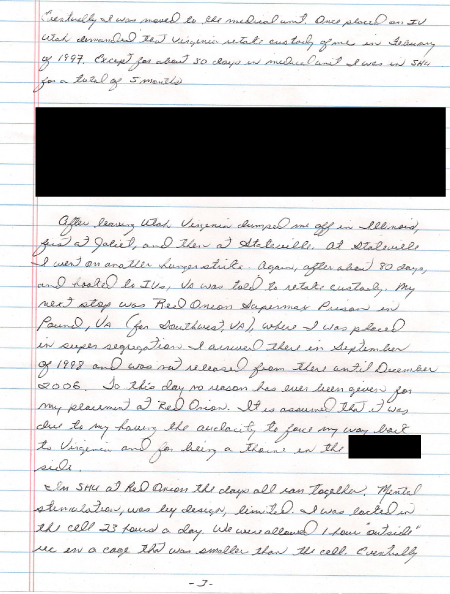 Eventually I was moved to the medical unit. Once placed on IV
Utah demanded that Virginia retake custody of me in February
of 1997. Except for about 30 days in medical unit I was in SHU
for a total of 5 months
After leaving Utah Virginia dumped me off in Illinois,
first at Joliet, and then at Stateville. At Stateville
I went on another hunger strike. Again, after about 30 days,
and hooked to IVs, VA was told to retake custody. My
next stop was Red Onion Supermax Prison in
Pound, VA (far Southwest, VA), where I was placed
in super segregation. I arrived there in September
of 1998 and was not released from there until December
2006. To this day no reason has ever been given for
my placement at Red Onion. It is assumed that it was
due to my having the audacity to force my way back
to Virginia and for being a thorn in the
side.
In SHU at Red Onion the days all ran together. Mental
stimulation, was by design, limited. I was locked in
the cell 23 hours a day. We were allowed 1 hour "outside"
rec in a cage that was smaller than the cell. Eventually